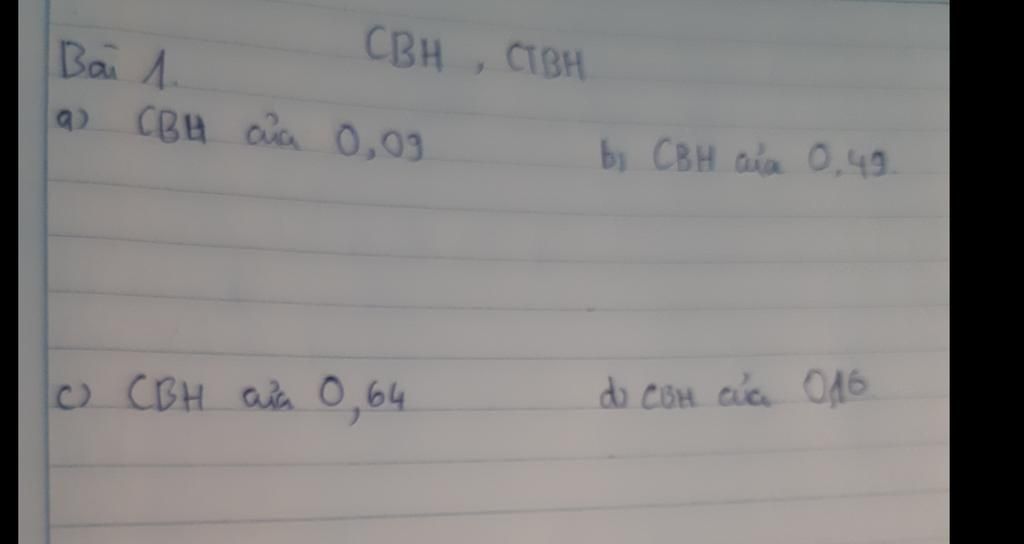 CBH, CTBH
Bài 1.
a) CBH của 0,09
b) CBH của 0,49
c) CBH của 0,64
d) CBH của 0,16